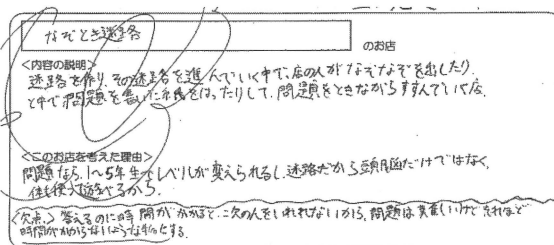 なぞとき迷路
のお店
<内容の説明>
迷路を作り、その迷路を進んでいく中で、店の人がなぞなぞを出したり、
と中で問題を書いた紙をはったりして、問題をときながらすすんでいく店。
<このお店を考えた理由>
問題なら、1〜5年生でレベルが変えられるし、迷路だから頭脳だけではなく、
体も使って遊べるから。
<欠点>答えるのに時間がかかると、次の人をいれれないから、問題は難しいけどそれほど
時間がかからないような物にする。